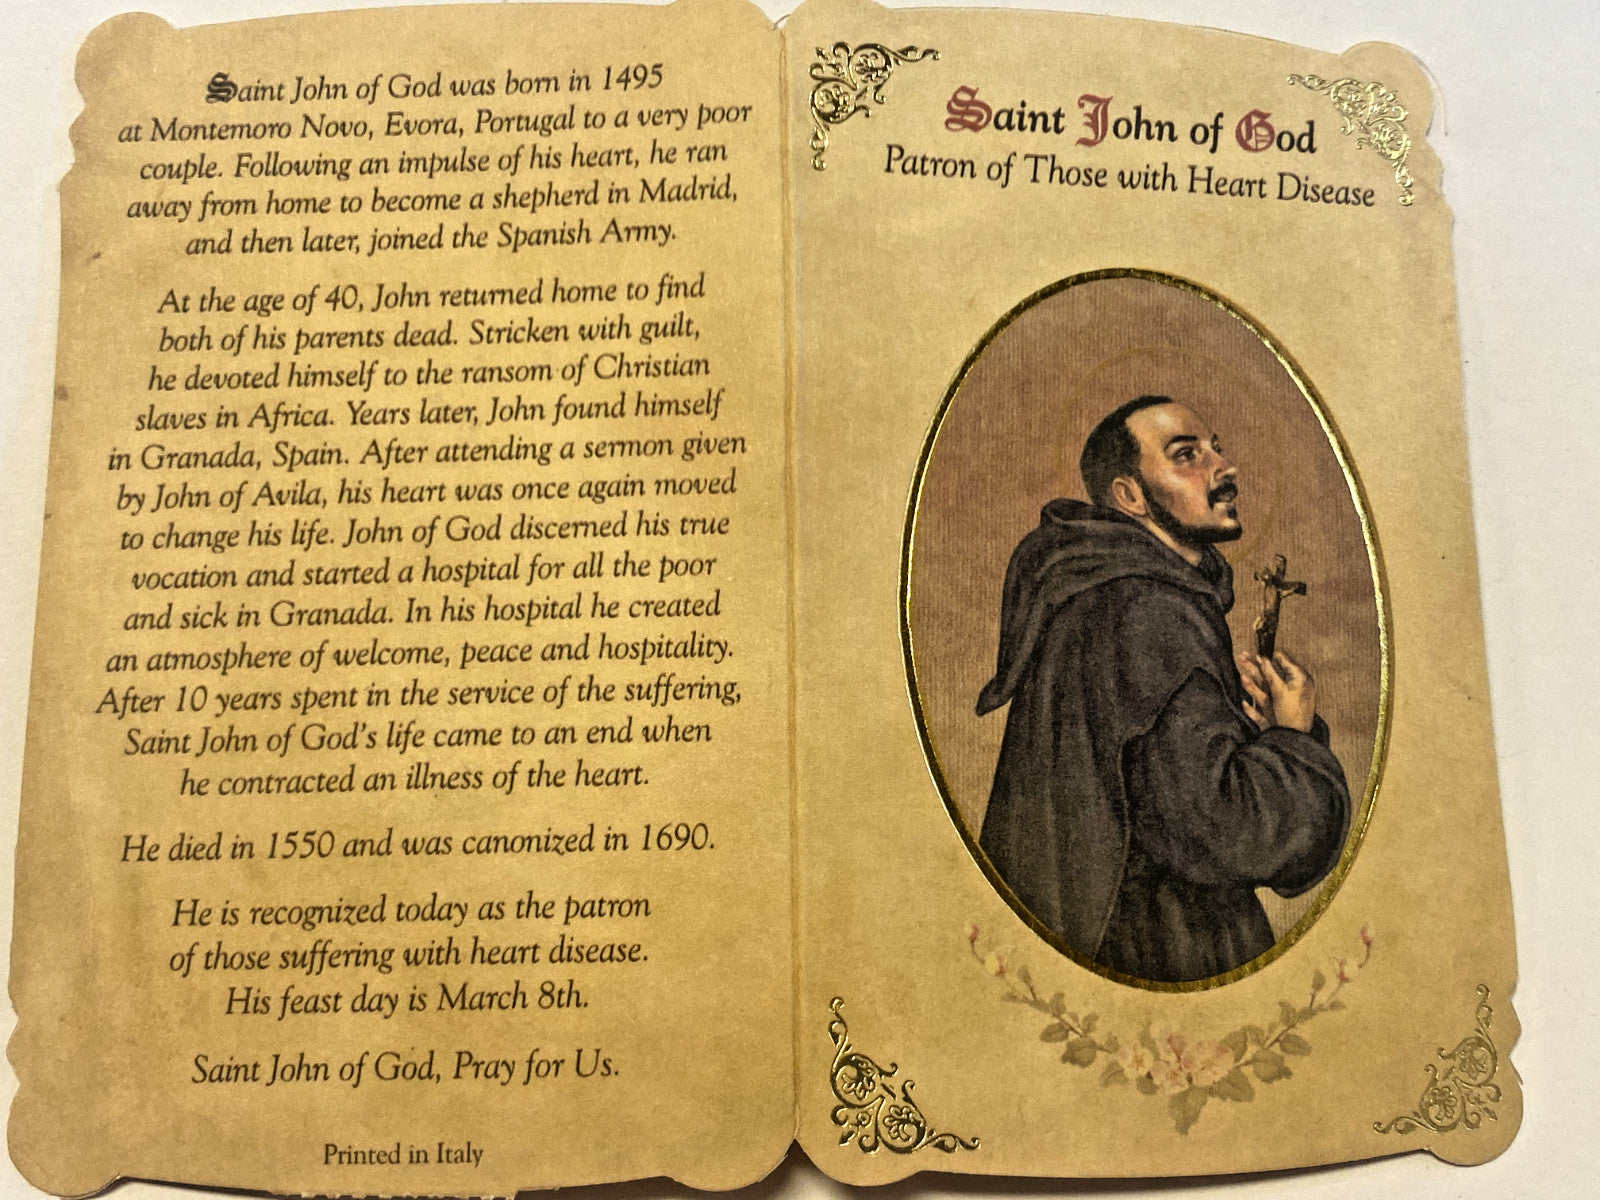 Saint John of God was born in 1495
at Montemoro Novo, Evora, Portugal to a very poor
couple. Following an impulse of his heart, he ran
away from home to become a shepherd in Madrid,
and then later, joined the Spanish Army.
At the age of 40, John returned home to find
both of his parents dead. Stricken with guilt,
he devoted himself to the ransom of Christian
slaves in Africa. Years later, John found himself
in Granada, Spain. After attending a sermon given
by John of Avila, his heart was once again moved
to change his life. John of God discerned his true
vocation and started a hospital for all the poor
and sick in Granada. In his hospital he created
an atmosphere of welcome, peace and hospitality.
After 10 years spent in the service of the suffering,
Saint John of God's life came to an end when
he contracted an illness of the heart.
He died in 1550 and was canonized in 1690.
He is recognized today as the patron
of those suffering with heart disease.
His feast day is March 8th.
Saint John of God, Pray for Us.
Printed in Italy
Saint John of God
Patron of Those with Heart Disease